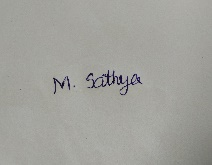 M. Sathya